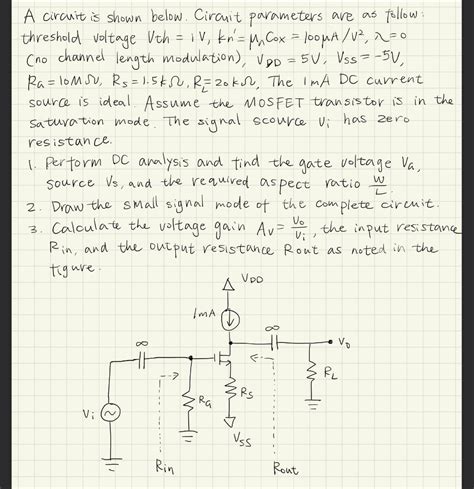 A circuit is shown below. Circuit parameters are as follow:
threshold voltage Vth = 1V, kn' = μnCox = 100μA/V², λ=0
(no channel length modulation), VDD = 5V, VSS = -5V,
RG = 10MΩ, RS = 1.5kΩ, RL = 20kΩ, The 1mA DC current
source is ideal. Assume the MOSFET transistor is in the
saturation mode. The signal scource Vi has zero
resistance.
1. Perform DC analysis and find the gate voltage VG,
source VS, and the required aspect ratio W/L.
2. Draw the small signal mode of the complete circuit.
3. Calculate the voltage gain Av = Vo/Vi, the input resistance
Rin, and the output resistance Rout as noted in the
figure.
VDD
1mA
∞
∞
Vo
RL
RG
RS
Vi
VSS
Rin
Rout